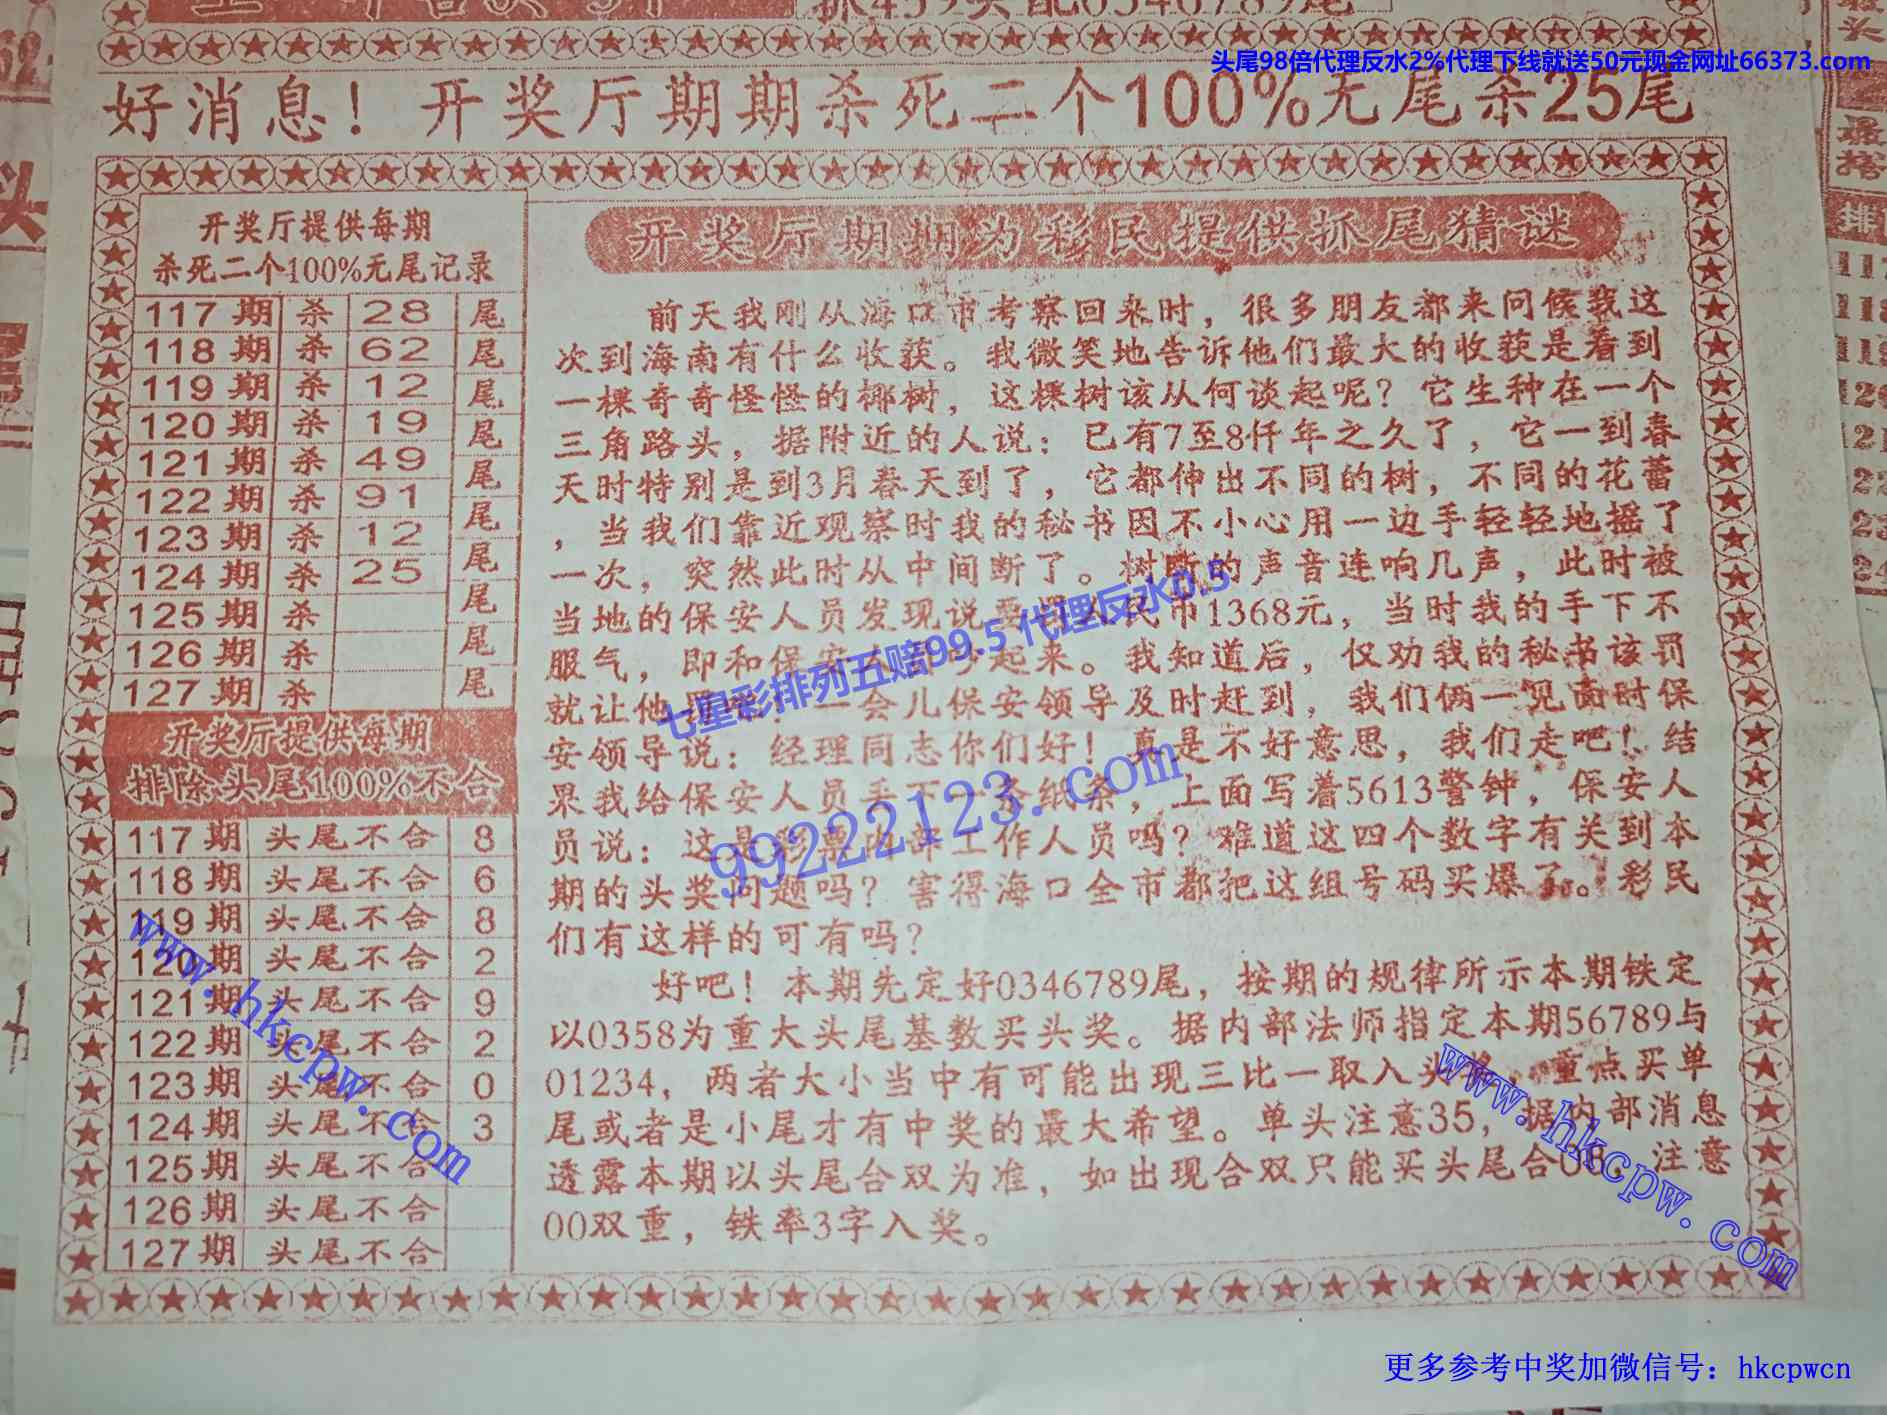 抓459头配0346789尾
头尾98倍代理反水2%代理下线就送50元现金网址66373.com
好消息！开奖厅期期杀死二个100%无尾杀25尾
开奖厅提供每期
杀死二个100%无尾记录
117期 杀 28 尾
118期 杀 62 尾
119期 杀 12 尾
120期 杀 19 尾
121期 杀 49 尾
122期 杀 91 尾
123期 杀 12 尾
124期 杀 25 尾
125期 杀 尾
126期 杀 尾
127期 杀
开奖厅提供每期
排除头尾100%不合
117期 头尾不合 8
118期 头尾不合 6
119期 头尾不合 8
120期 头尾不合 2
121期 头尾不合 9
122期 头尾不合 2
123期 头尾不合 0
124期 头尾不合 3
125期 头尾不合
126期 头尾不合
127期 头尾不合
开奖厅期期为彩民提供抓尾猜谜
前天我刚从海口市考察回来时，很多朋友都来问候我这
次到海南有什么收获。我微笑地告诉他们最大的收获是看到
一棵奇奇怪怪的椰树，这棵树该从何谈起呢？它生种在一个
三角路头，据附近的人说：已有7至8仟年之久了，它一到春
天时特别是到3月春天到了，它都伸出不同的树，不同的花蕾
，当我们靠近观察时我的秘书因不小心用一边手轻轻地摇了
一次，突然此时从中间断了。树断的声音连响几声，此时被
当地的保安人员发现说要罚人民币1368元，当时我的手下不
服气，即和保安人员吵起来。我知道后，仅劝我的秘书该罚
就让他罚吧！一会儿保安领导及时赶到，我们俩一见面时保
安领导说：经理同志你们好！真是不好意思，我们走吧！结
果我给保安人员手下一条纸条，上面写着5613警钟，保安人
员说：这是彩票内部工作人员吗？难道这四个数字有关到本
期的头奖问题吗？害得海口全市都把这组号码买爆了。彩民
们有这样的可有吗？
好吧！本期先定好0346789尾，按期的规律所示本期铁定
以0358为重大头尾基数买头奖。据内部法师指定本期56789与
01234，两者大小当中有可能出现三比一取入头奖，重点买单
尾或者是小尾才有中奖的最大希望。单头注意35，据内部消息
透露本期以头尾合双为准，如出现合双只能买头尾合08，注意
00双重，铁率3字入奖。
七星彩排列五赔99.5 代理反水0.5
99222123.com
www.hkcpw.com
www.hkcpw.com
更多参考中奖加微信号：hkcpwcn